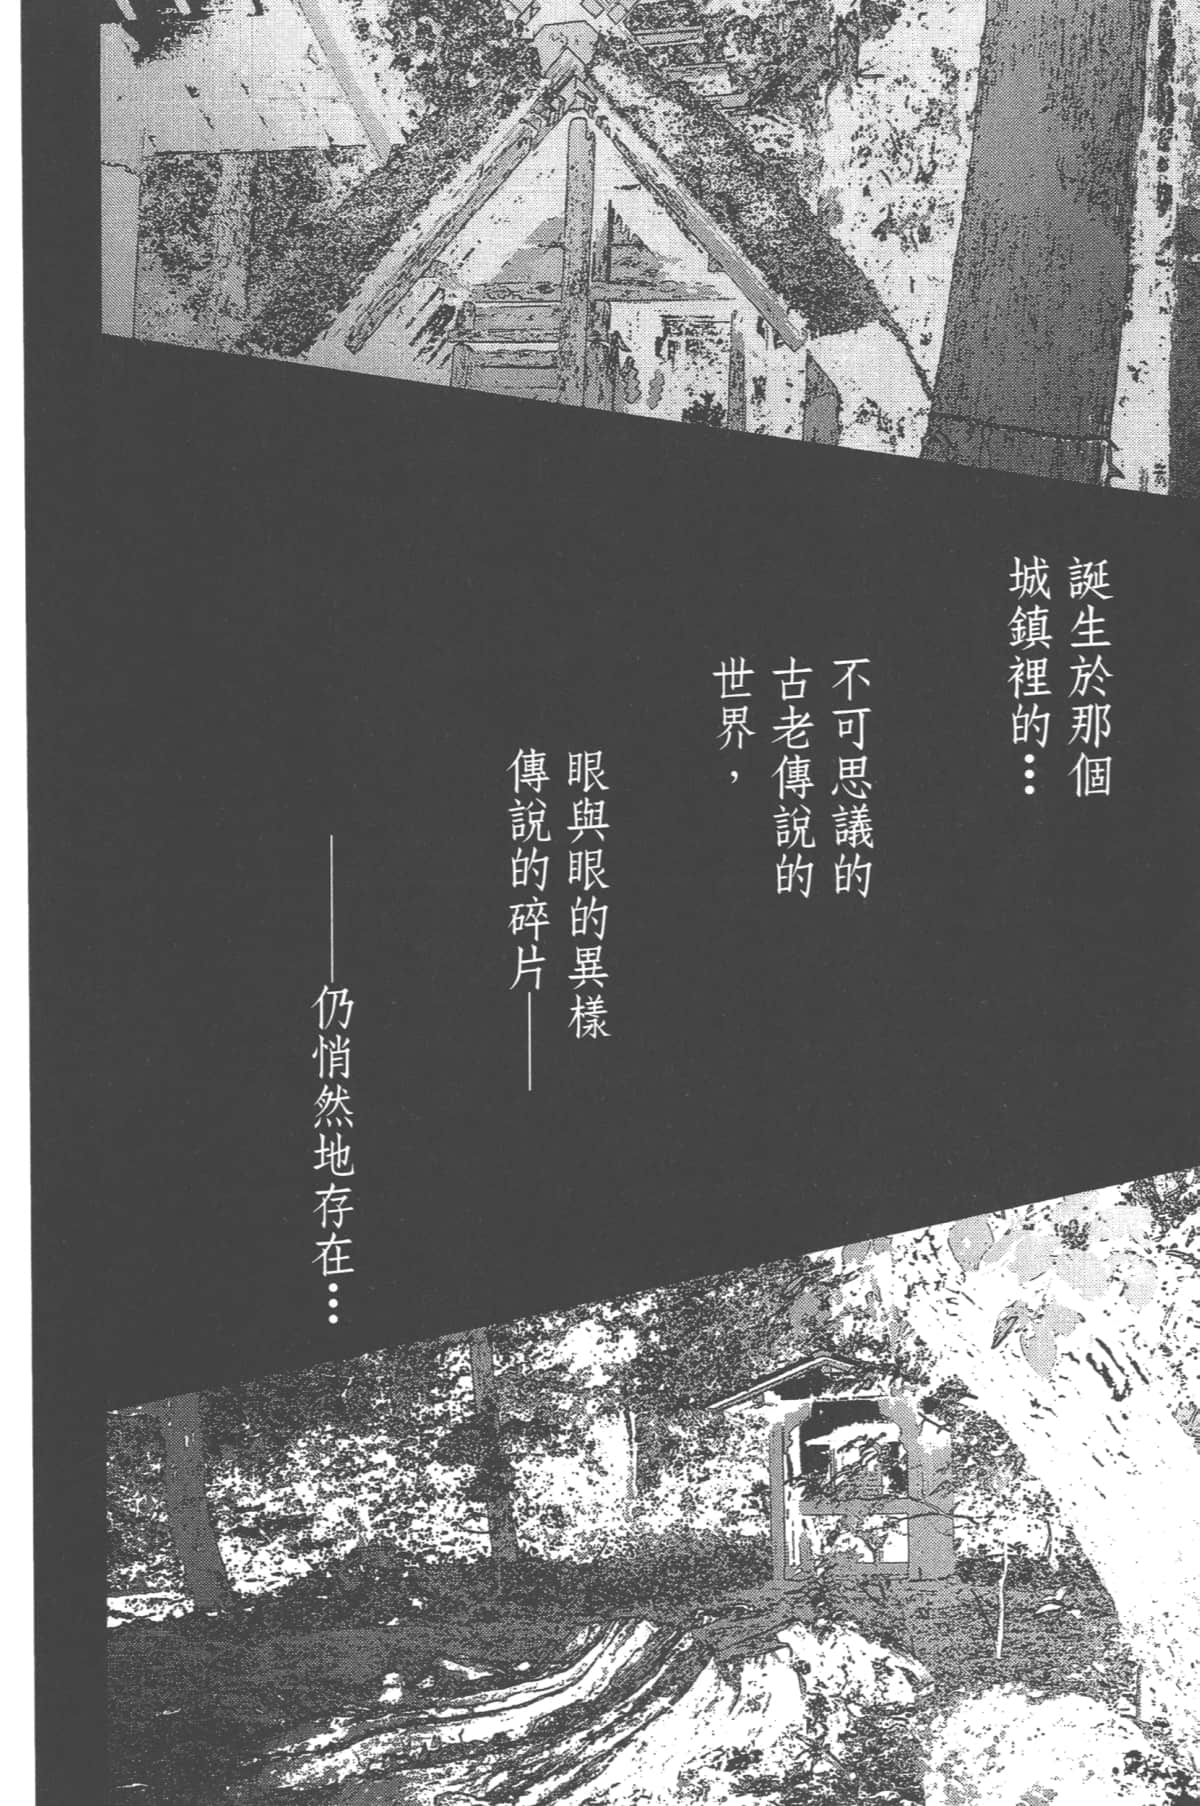 誕生於那個
城鎮裡的…
不可思議的
古老傳說的
世界，
眼與眼的異樣
傳說的碎片——
——仍悄然地存在…